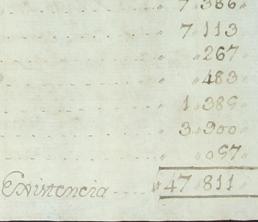 7 386
7 113
267
483
1 386
3 300
097
Existencia 47 811